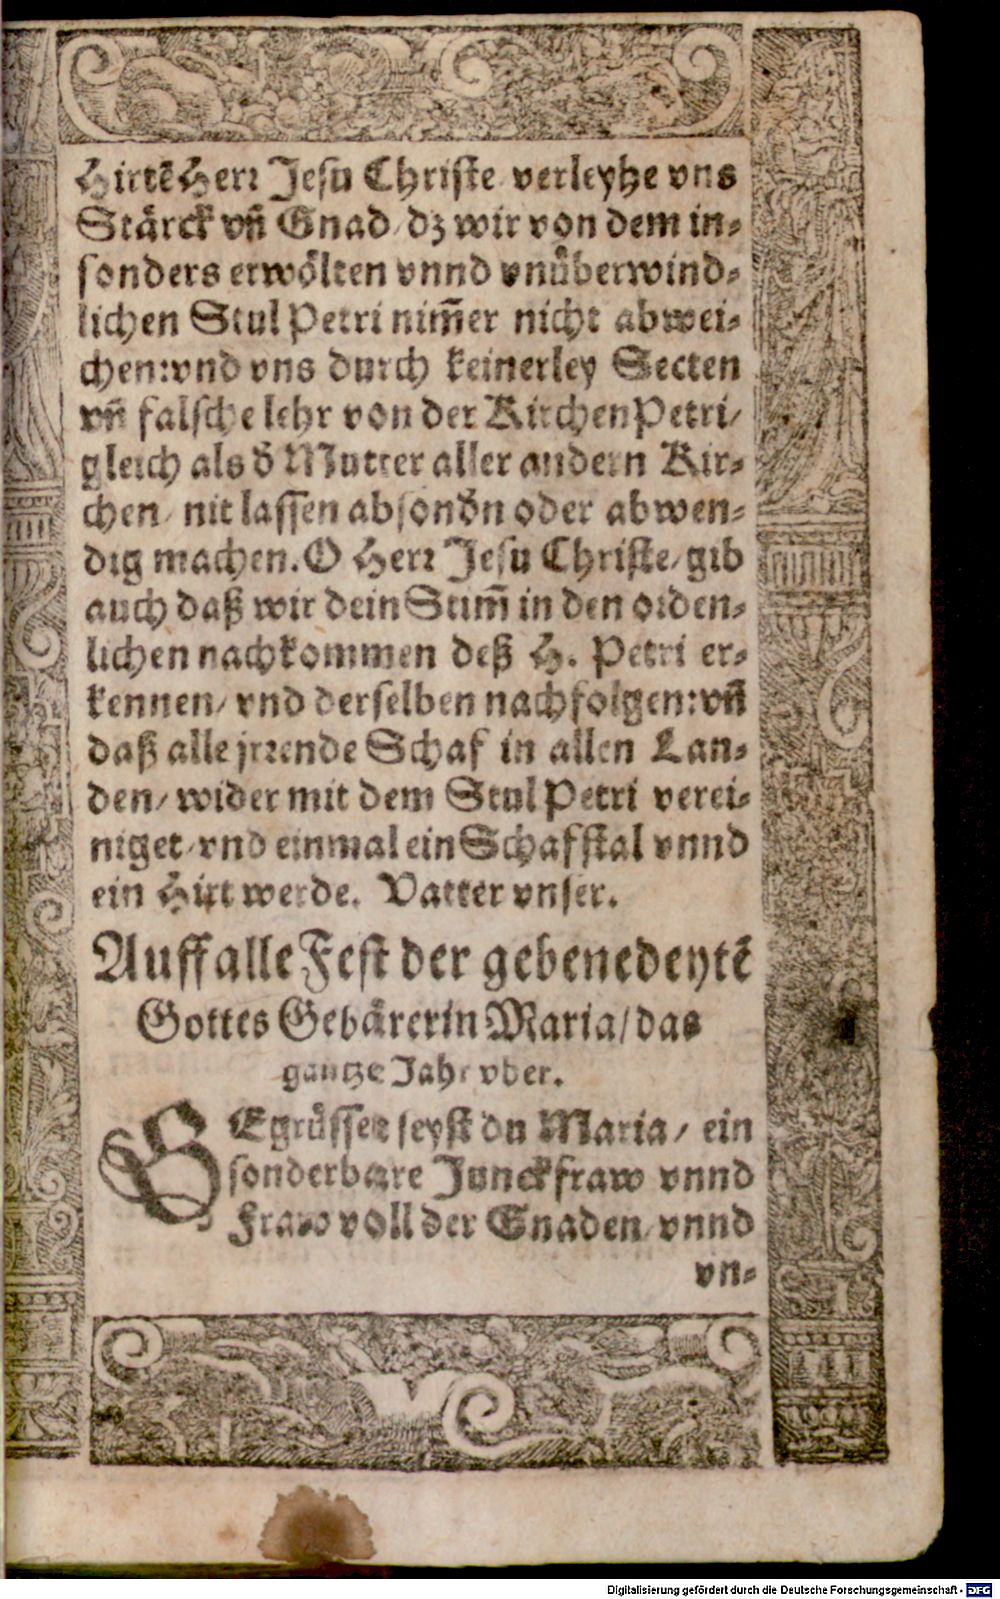 Hirtē Herr Jesu Christe verleyhe vns
Stärck vn̄ Gnad/ dz wir von dem in⸗
sonders erwölten vnnd vnüberwind⸗
lichen Stul Petri nim̄er nicht abwei⸗
chen: vnd vns durch keinerley Secten
vn̄ falsche lehr von der Kirchen Petri/
gleich als d̄ Mutter aller andern Kir⸗
chen/ nit lassen absond̄n oder abwen⸗
dig machen. O Herr Jesu Christe/ gib
auch daß wir dein Stim̄ in den orden⸗
lichen nachkommen deß H. Petri er⸗
kennen/ vnd derselben nachfolgen: vn̄
daß alle jrrende Schaf in allen Lan⸗
den/ wider mit dem Stul Petri verei⸗
niget/ vnd einmal ein Schafstal vnnd
ein Hirt werde. Vatter vnser.
Auff alle Fest der gebenedeytē
Gottes Gebärerin Maria/ das
gantze Jahr vber.
GEgrüsset seyst du Maria/ ein
sonderbare Junckfraw vnnd
Fraw voll der Gnaden/ vnnd
vn⸗
Digitalisierung gefördert durch die Deutsche Forschungsgemeinschaft - DFG